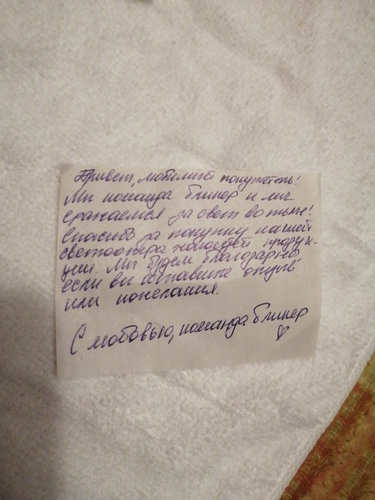 Привет, любимый покупатель!
Мы команда блинер и мы
сражаемся за свет во тьме!
Спасибо за покупку нашей
светоотражающей продук-
ции. Мы будем благодарны
если вы оставите отзыв
или пожелания.
С любовью, команда блинер
♡